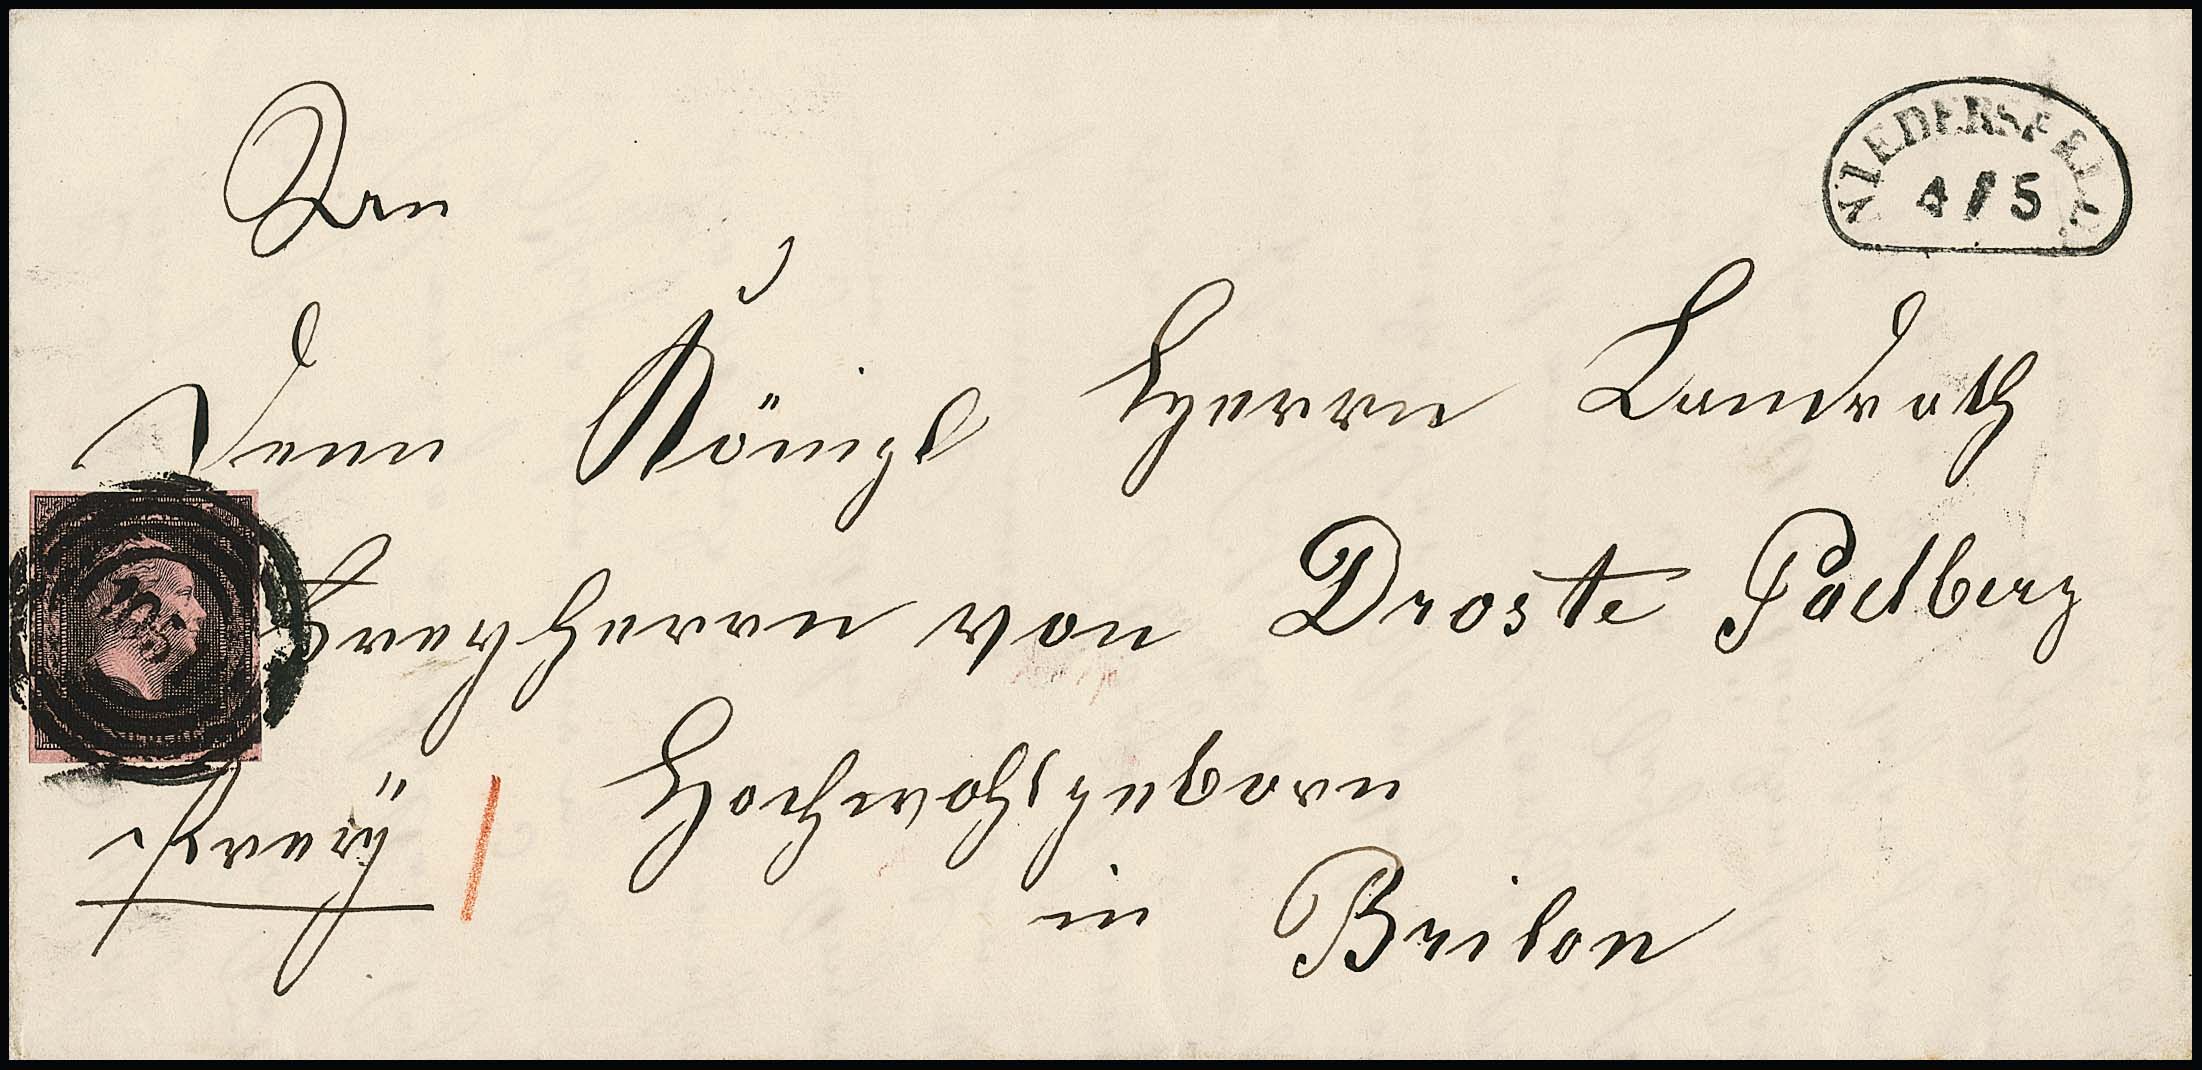 NIEDERSFELD.
4/5
An
den Königl Herrn Landrath
Freyherrn von Droste Padberg
Hochwohlgeborn
in Brilon
frey